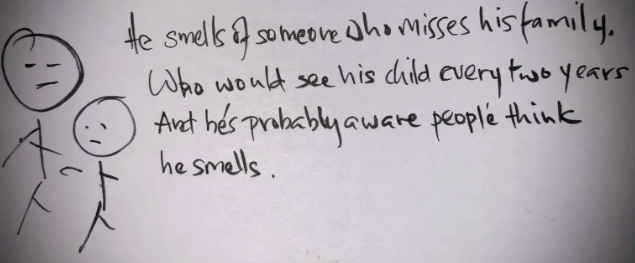 He smells of someone who misses his family.
Who would see his child every two years
And he's probably aware people think
he smells.